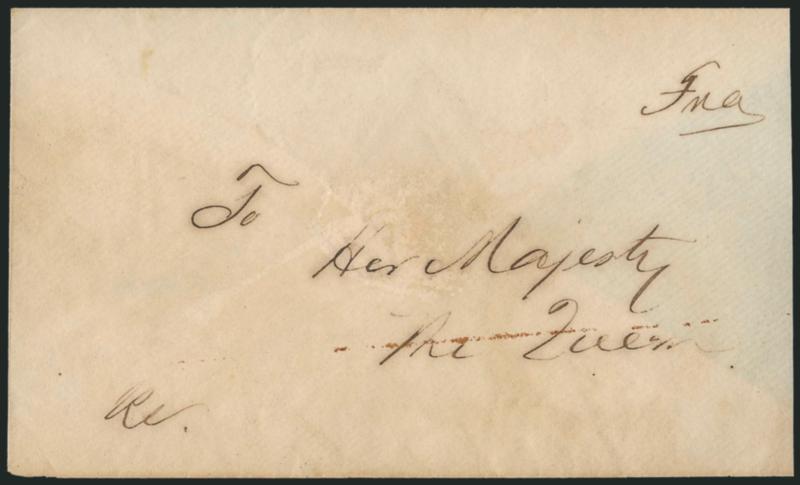 To
Her Majesty
The Queen